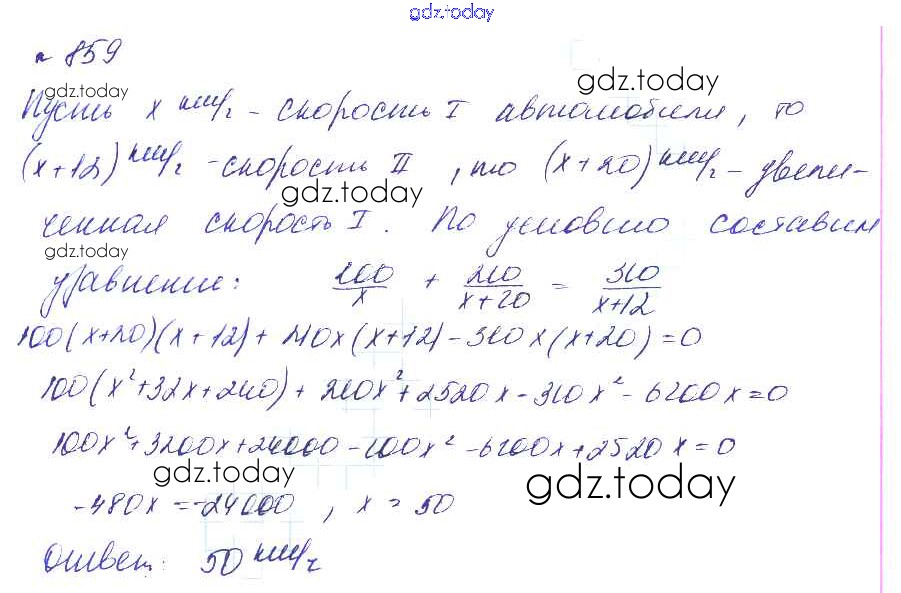 gdz.today
№ 859
gdz.today
gdz.today
Пусть x км/ч - скорость I автомобиля, то
(x+12) км/ч - скорость II, то (x+20) км/ч - увели-
gdz.today
ченная скорость I. По условию составим
gdz.today
уравнение: 100/x + 210/(x+20) = 310/(x+12)
100(x+20)(x+12) + 210x(x+12) - 310x(x+20) = 0
100(x²+32x+240) + 210x² + 2520x - 310x² - 6200x = 0
100x² + 3200x + 24000 - 100x² - 6200x + 2520x = 0
gdz.today
gdz.today
-480x = -24000, x = 50
gdz.today
Ответ: 50 км/ч